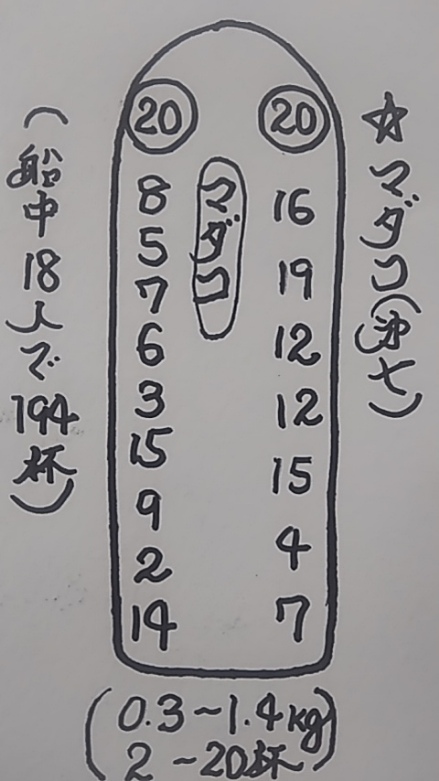 ☆マダコ(第七)
20 20
マダコ
8 16
5 19
7 12
6 12
3 15
15 4
9 7
2
14
(船中18人で194杯)
(0.3~1.4kg
2~20杯)